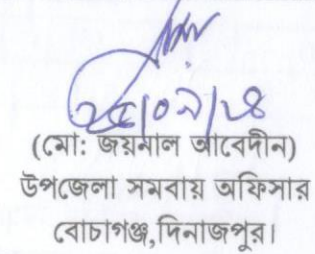 ২৫/০৯/২৪
(মো: জয়নাল আবেদীন)
উপজেলা সমবায় অফিসার
বোচাগঞ্জ,দিনাজপুর।